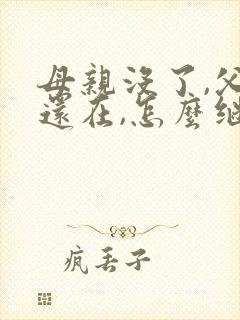 母親沒了,父
還在,怎麼繼
疯丢子